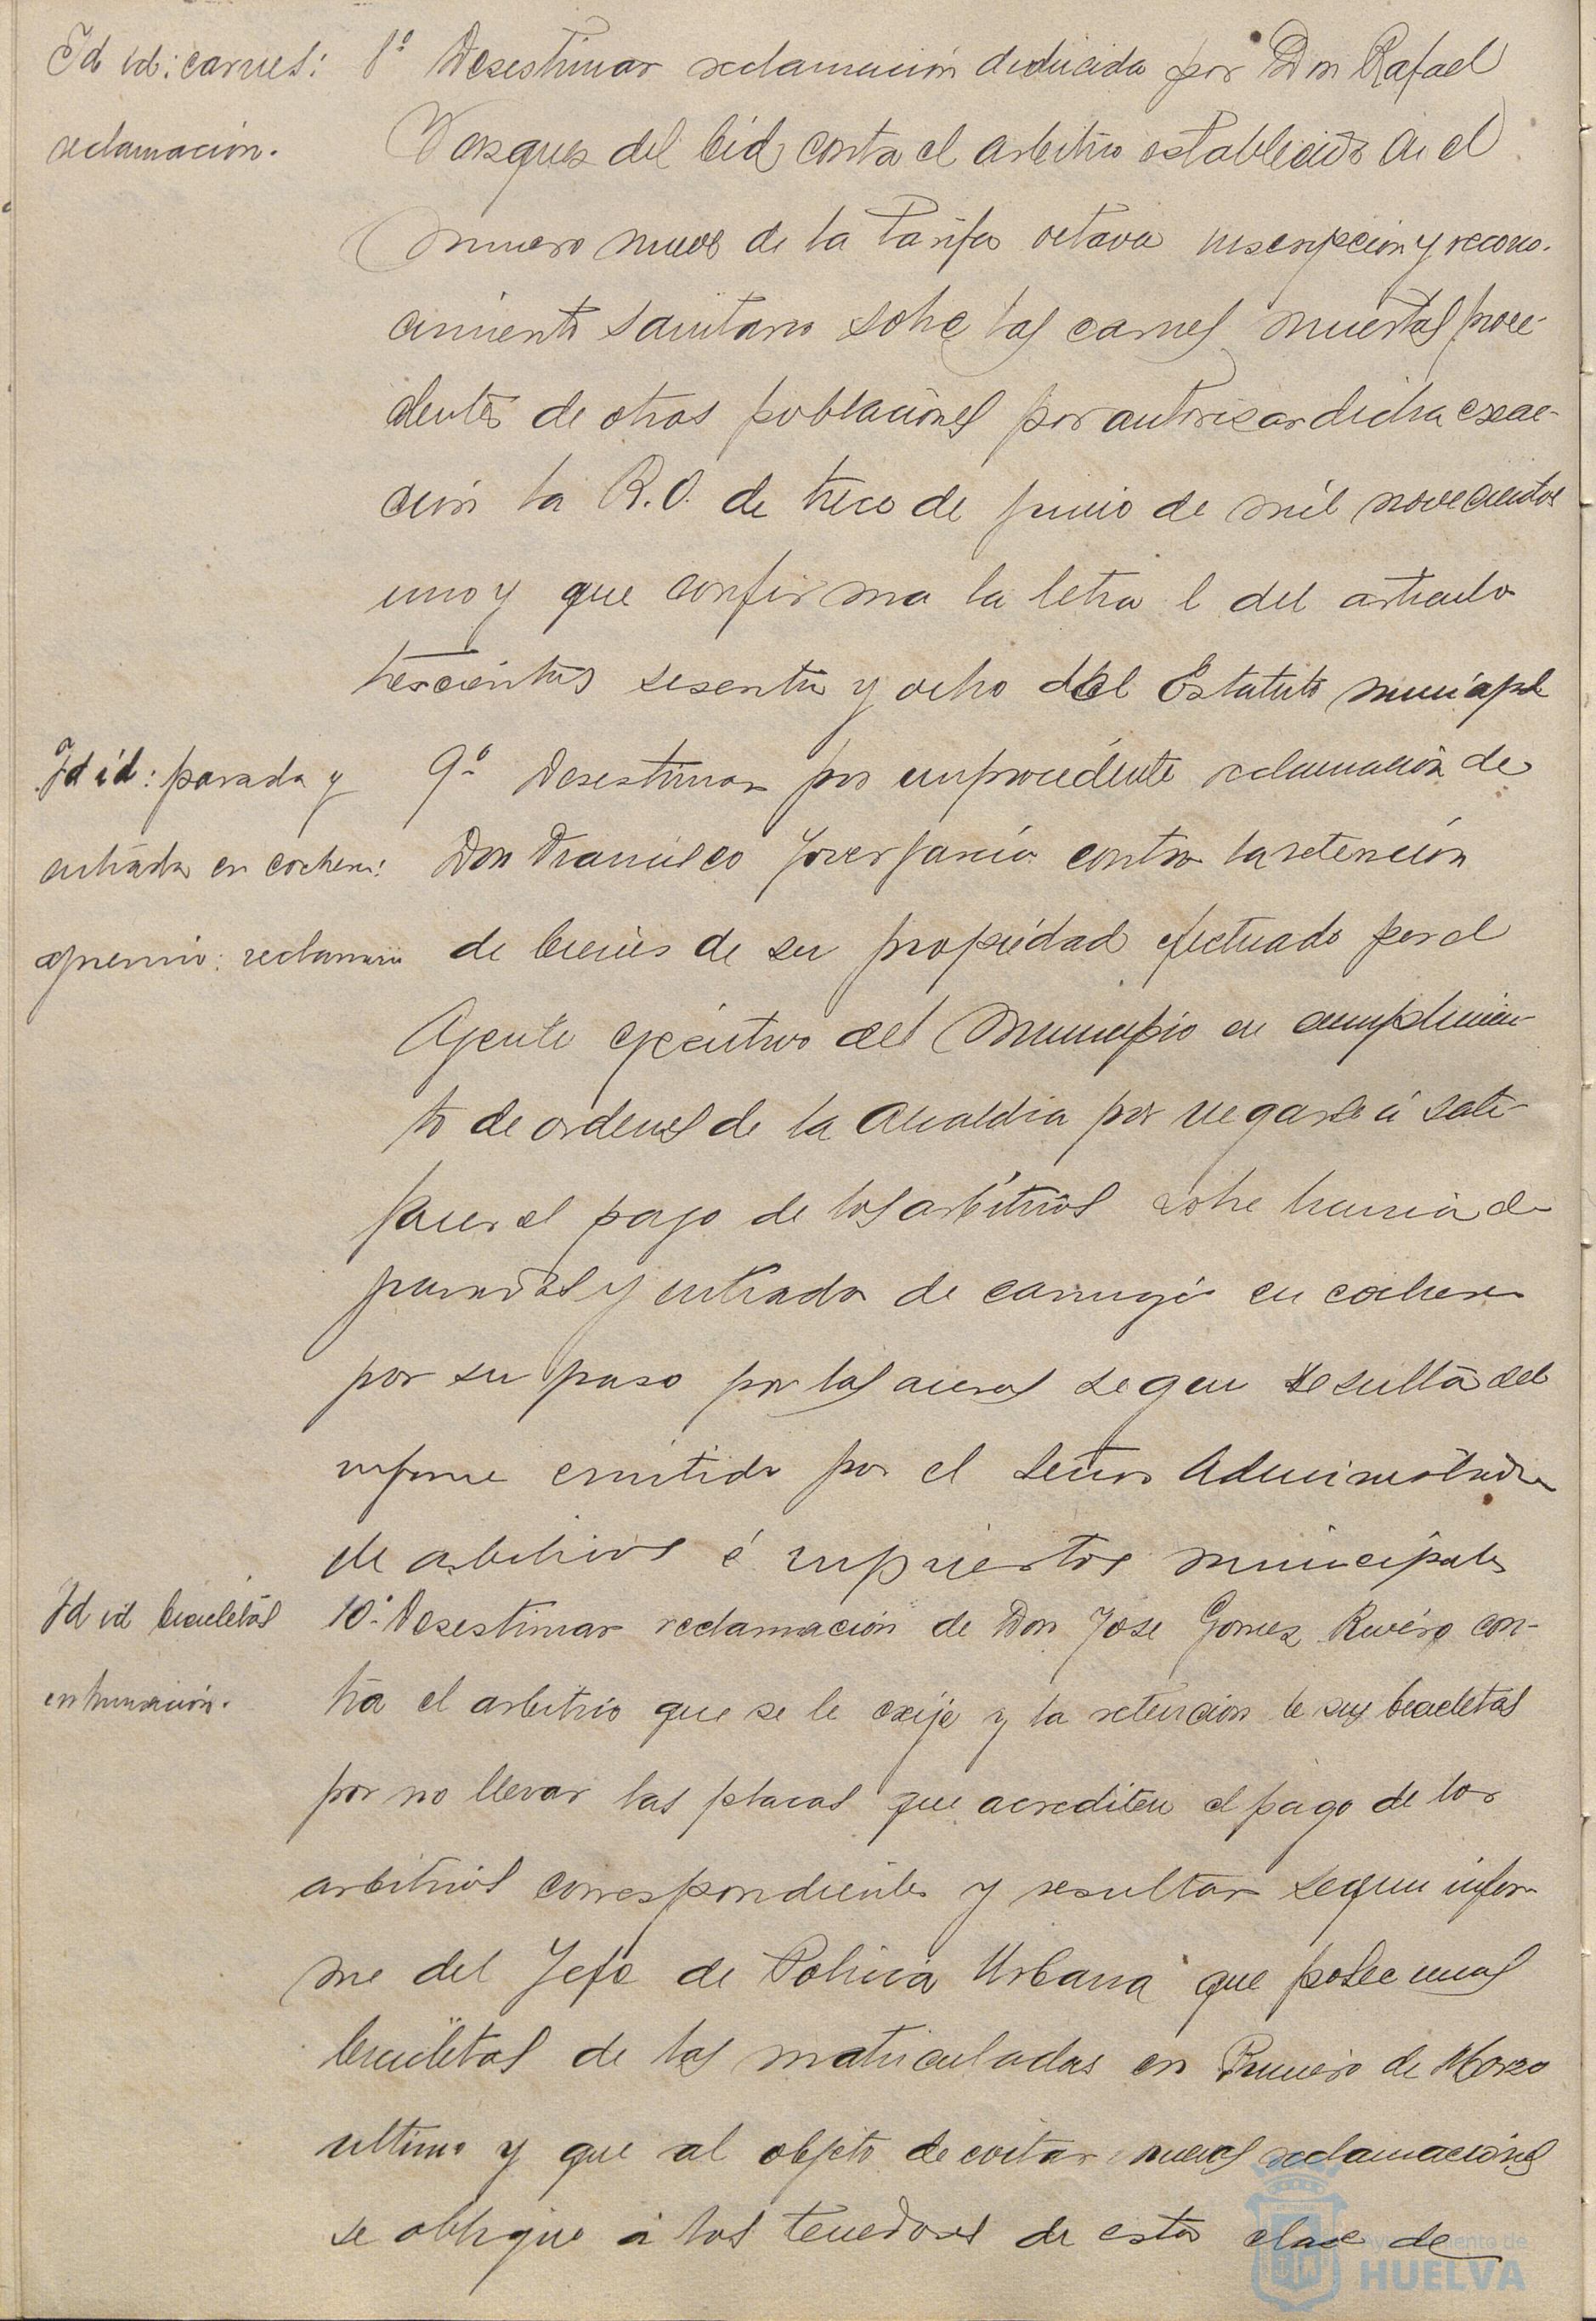 Id id: carnes:
reclamación.
8º Desestimar reclamación deducida por Don Rafael
Vazquez del Cid contra el arbitrio establecido en el
numero nueve de la Tarifa octava inscripcion y recono-
cimiento sanitario sobre las carnes muertas proce-
dentes de otras poblaciones por autorizar dicha exac-
ción la R.O. de trece de junio de mil novecientos
uno y que confirma la letra l del articulo
trescientos sesenta y ocho del Estatuto municipal
Id id: parada y
entrada en cochera:
apremio: reclamación
9º Desestimar por improcedente reclamación de
Don Francisco Jover García contra la retención
de bienes de su propiedad efectuado por el
Agente ejecutivo del Municipio en cumplimien-
to de ordenes de la Alcaldia por negarse á satis-
facer el pago de los arbitrios sobre licencia de
paradas y entrada de carruaje en cochera
por su paso por las aceras segun resulta del
informe emitido por el Señor Administrador
de arbitrios é impuestos municipales
Id id bicicletas
10º Desestimar reclamación de Don Jose Gomez Rivero con-
tra el arbitrio que se le exije y la retencion de sus bicicletas
por no llevar las placas que acrediten el pago de los
arbitrios correspondientes y resultar segun infor-
me del Jefe de Policia Urbana que posee unas
bicicletas de las matriculadas en Primero de Marzo
ultimo y que al objeto de evitar nuevas reclamaciones
se oblique á los tenedores de esta clase de
Ayuntamiento de
HUELVA